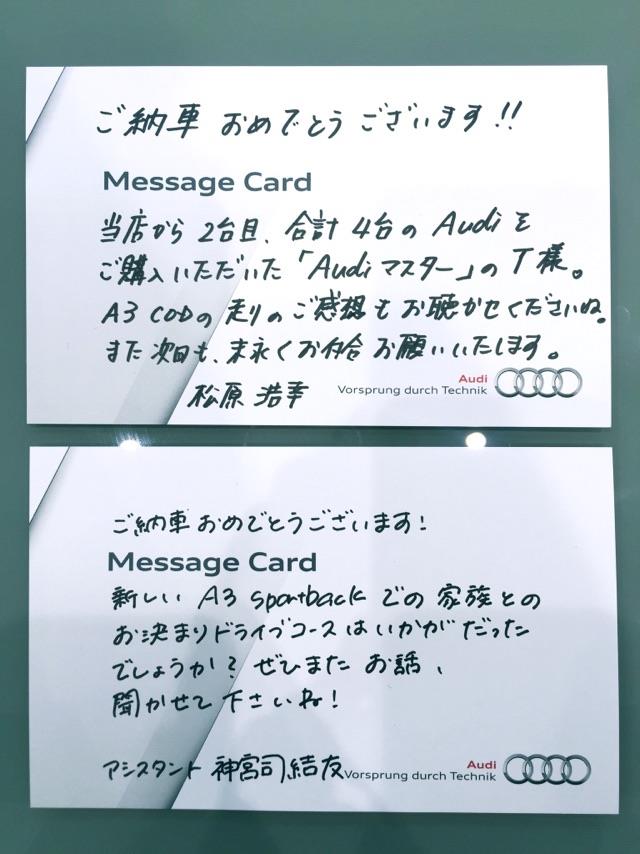 ご納車 おめでとう ございます!!
Message Card
当店から 2台目、合計 4台の Audi を
ご購入いただいた「Audi マスター」の T様。
A3 CODの 走りの ご感想も お聴かせくださいね。
また次回も、末永くお付合 お願いいたします。
松原 浩幸
Audi
Vorsprung durch Technik
ご納車 おめでとうございます!
Message Card
新しい A3 sportback での 家族との
お決まりドライブコースは いかがだった
でしょうか? ぜひまた お話、
聞かせて 下さいね!
アシスタント 神宮司 結友
Audi
Vorsprung durch Technik